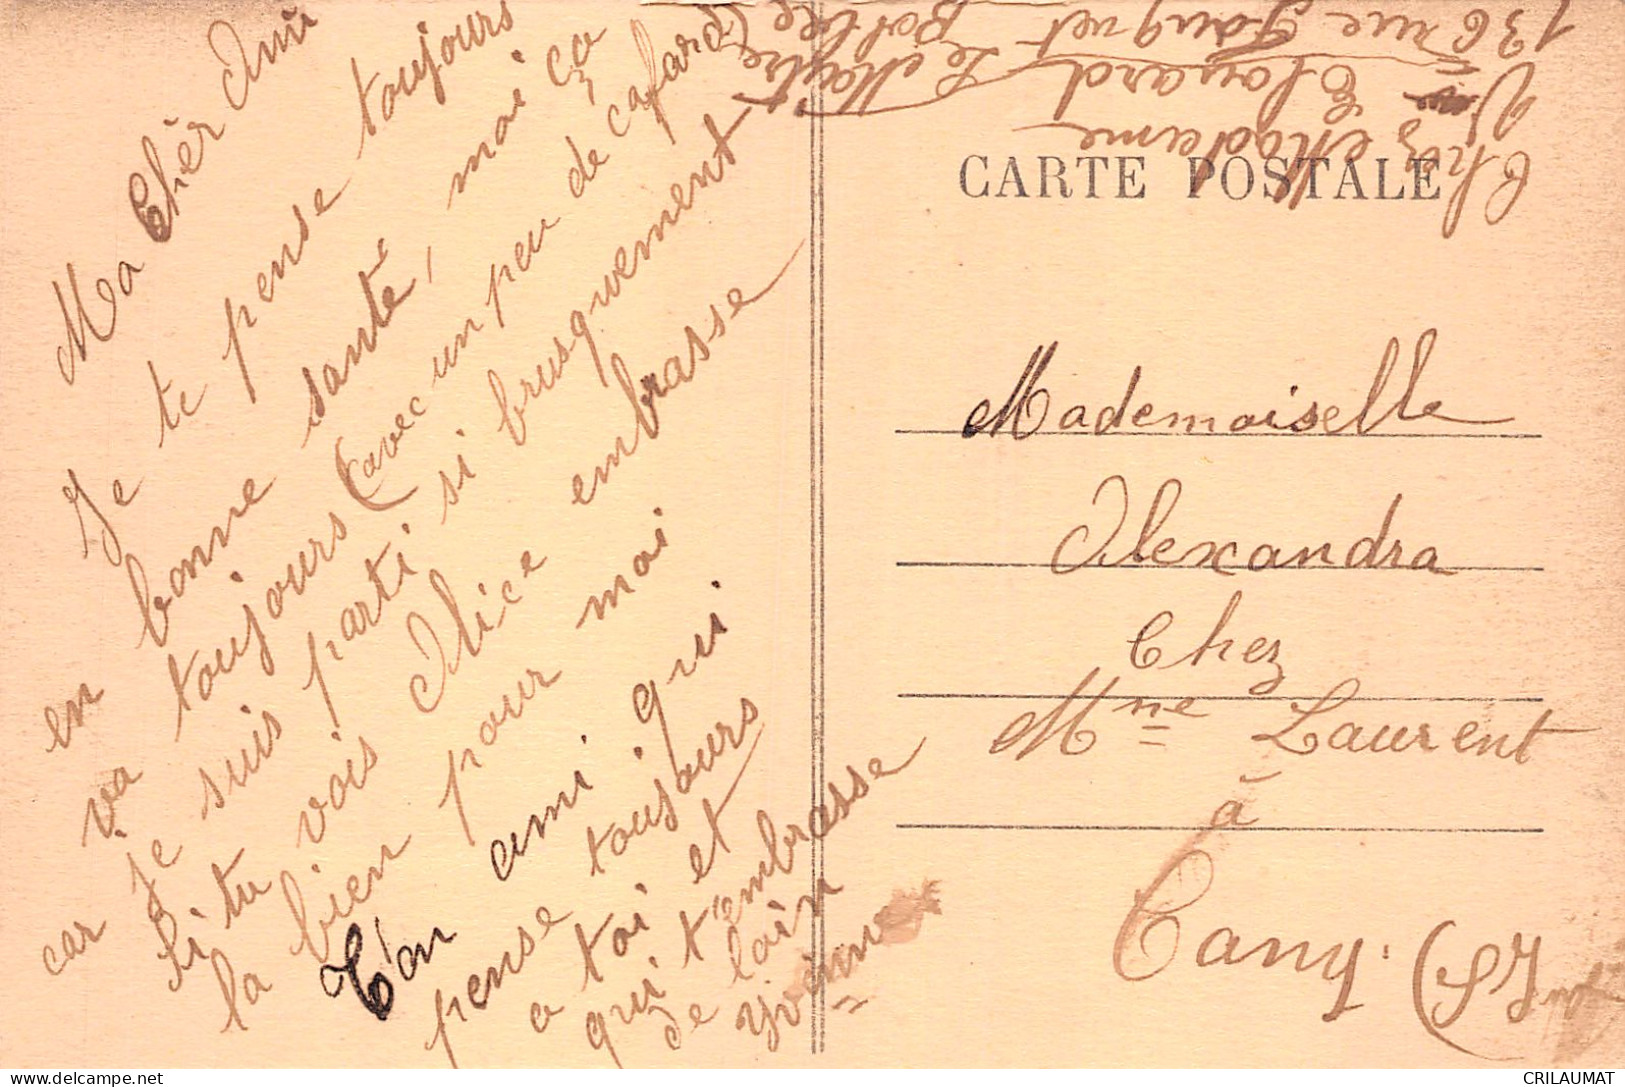 Ma Chèr Ami
Je te pense toujours
en bonne santé, moi ça
va toujours (avec un peu de cafard)
car je suis parti si brusquement
si tu vois Alice embrasse
la bien pour moi
Ton ami qui
pense toujours
a toi et
qui t'embrasse
de loin
Yvonne
CARTE POSTALE
Mademoiselle
Alexandra
Chez
Mme Laurent
à
Cany. (S Inf
Chez Madame
Vve Elouard Le Maitre
136 rue
CRILAUMAT